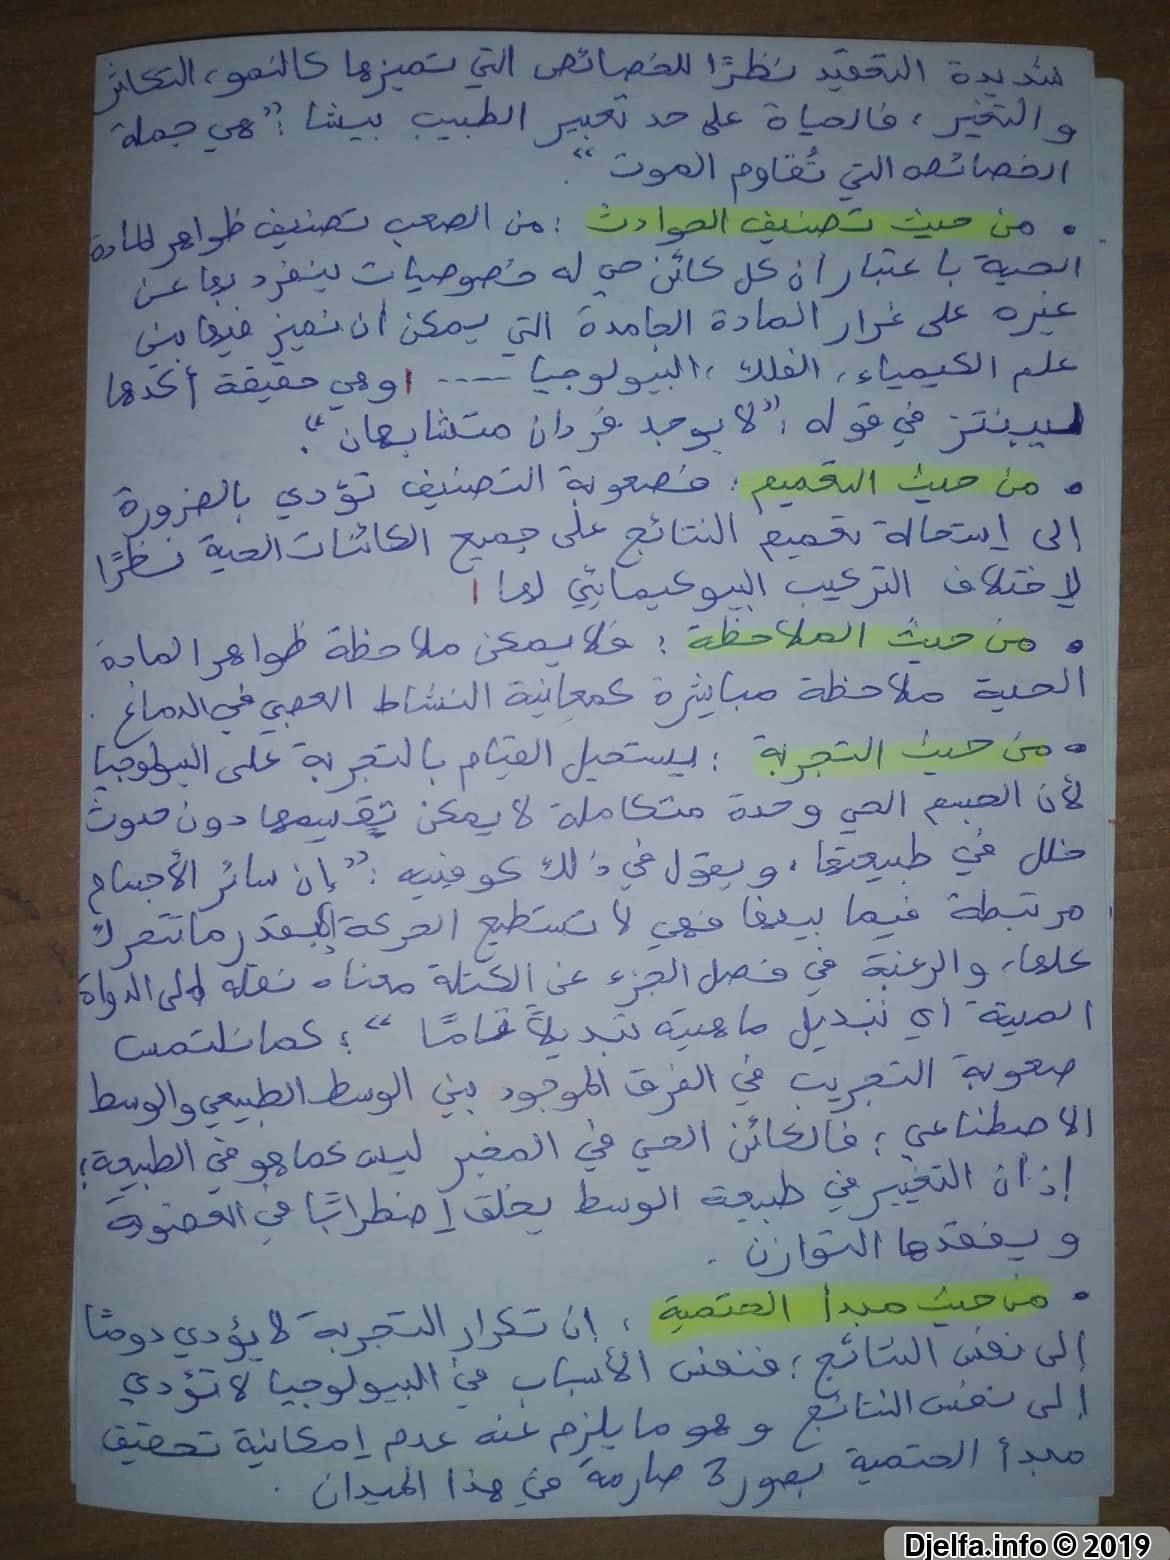 شديدة التعقيد نظرًا للخصائص التي تميزها كالنمو، التكاثر
والتغير، فالحياة على حد تعبير الطبيب بيشا :"هي جملة
الخصائص التي تُقاوم الموت".
• من حيث تصنيف الحوادث : من الصعب تصنيف ظواهر المادة
الحية باعتبار أن كل كائن حي له خصوصيات ينفرد بها عن
غيره على غرار المادة الجامدة التي يمكن أن نميز فيها بين
علم الكيمياء، الفلك، البيولوجيا ---- وهي حقيقة أكدها
ليبنتز في قوله :"لا يوجد فردان متشابهان".
• من حيث التعميم : فصعوبة التصنيف تؤدي بالضرورة
إلى إستحالة تعميم النتائج على جميع الكائنات الحية نظرًا
لإختلاف التركيب البيوكيميائي لها
• من حيث الملاحظة : فلا يمكن ملاحظة ظواهر المادة
الحية ملاحظة مباشرة كمعاينة النشاط العصبي في الدماغ.
• من حيث التجربة : يستحيل القيام بالتجربة على البيولوجيا
لأن الجسم الحي وحدة متكاملة لا يمكن تقسيمها دون حدوث
خلل في طبيعتها، ويقول في ذلك كوفييه :"إن سائر الأجسام
مرتبطة فيما بينها فهي لا تستطيع الحركة إلا بقدر ما تتحرك
كلها، والرغبة في فصل الجزء عن الكتلة معناه نقله إلى الذواة
الميتة أي تبديل ماهيته تبديلاً تامًا"؛ كما نلتمس
صعوبة التجريب في الفرق الموجود بين الوسط الطبيعي والوسط
الاصطناعي؛ فالكائن الحي في المخبر ليس كما هو في الطبيعة؛
إذ أن التغيير في طبيعة الوسط يخلق إضطرابًا في العضوية
ويفقدها التوازن.
• من حيث مبدأ الحتمية : إن تكرار التجربة لا يؤدي دومًا
إلى نفس النتائج؛ فنفس الأسباب في البيولوجيا لا تؤدي
إلى نفس النتائج وهو ما يلزم عنه عدم إمكانية تحقيق
مبدأ الحتمية بصورة صارمة في هذا الميدان.
Djelfa.info © 2019